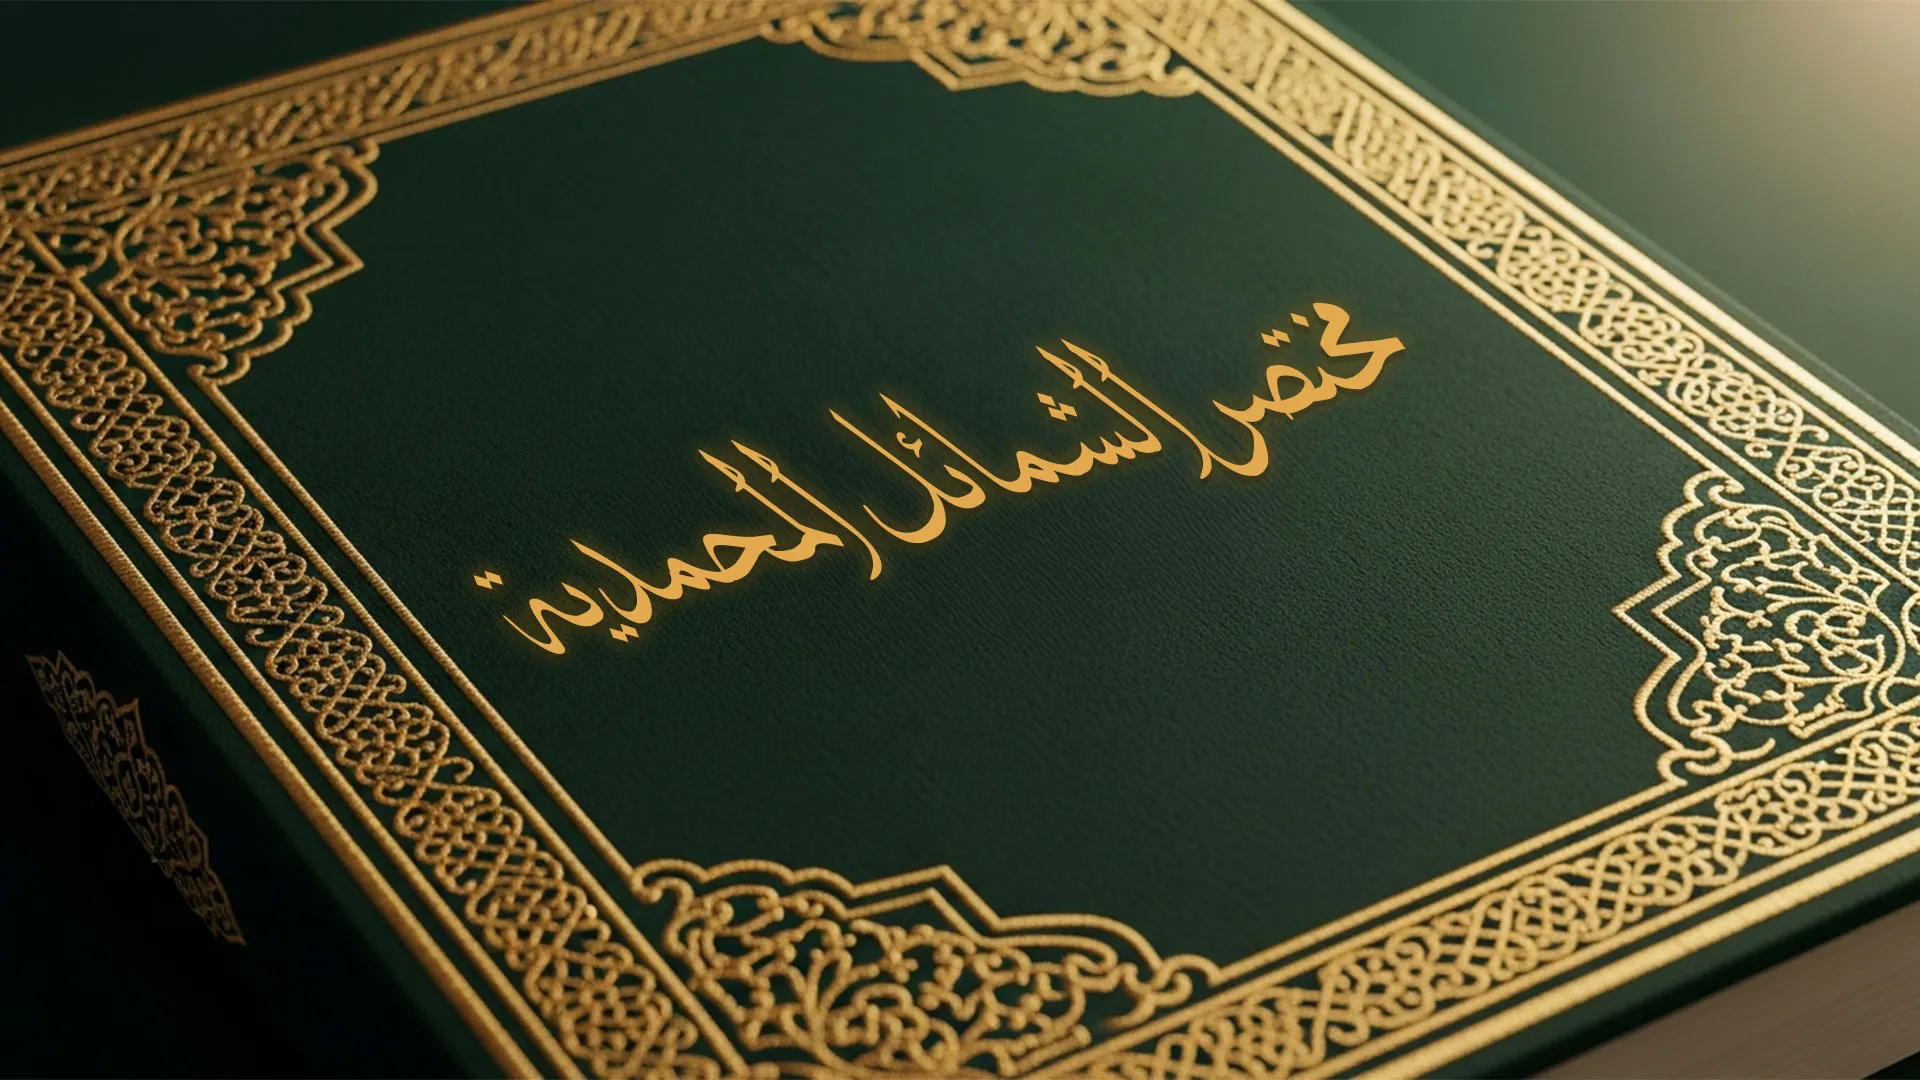 مختصر الشمائل المحمدية